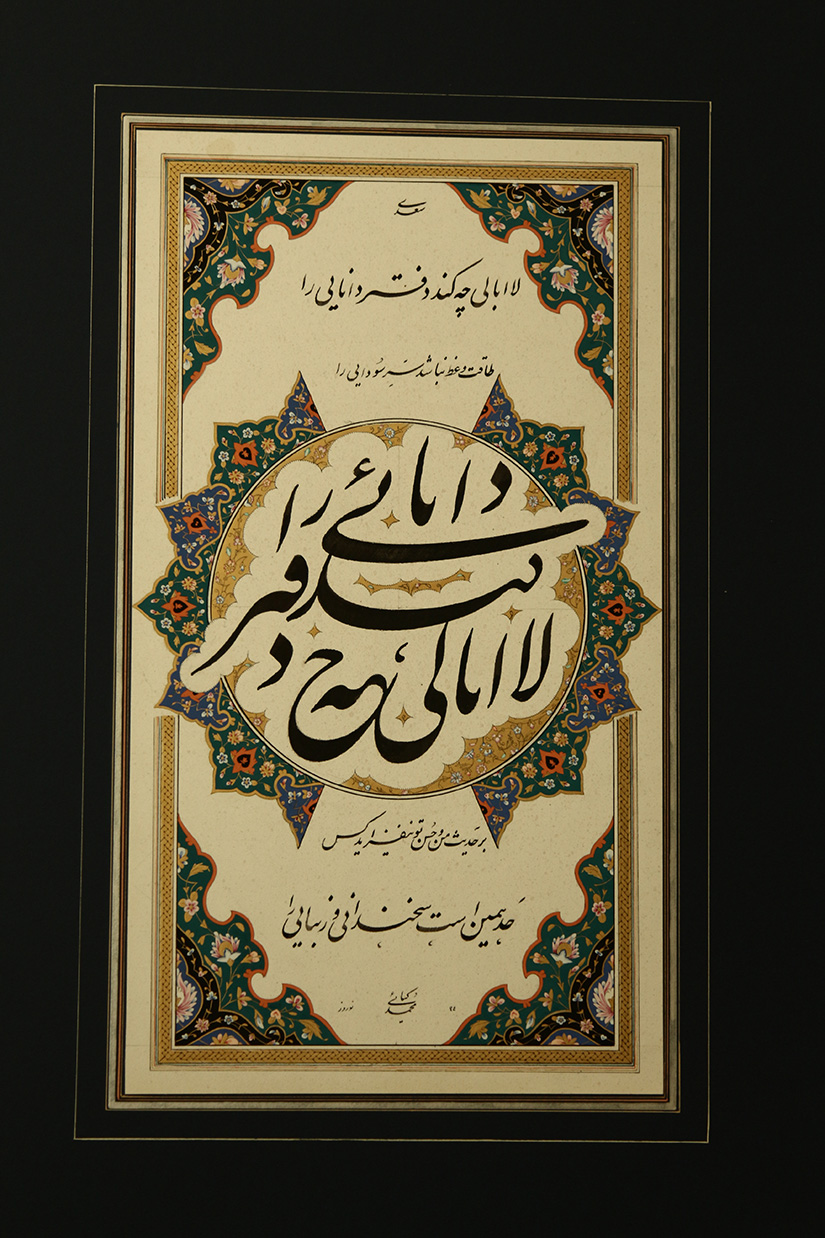 سعدی
لاابالی چه کند دفتر دانایی را
طاقت وعظ نباشد سَرِ سُودایی را
لاابالی چه کند دفتر دانائی را
بر حَدیث من و حُسن تو نیفزاید کس
حَد همین است سخندانی و زیبایی را
نوروز